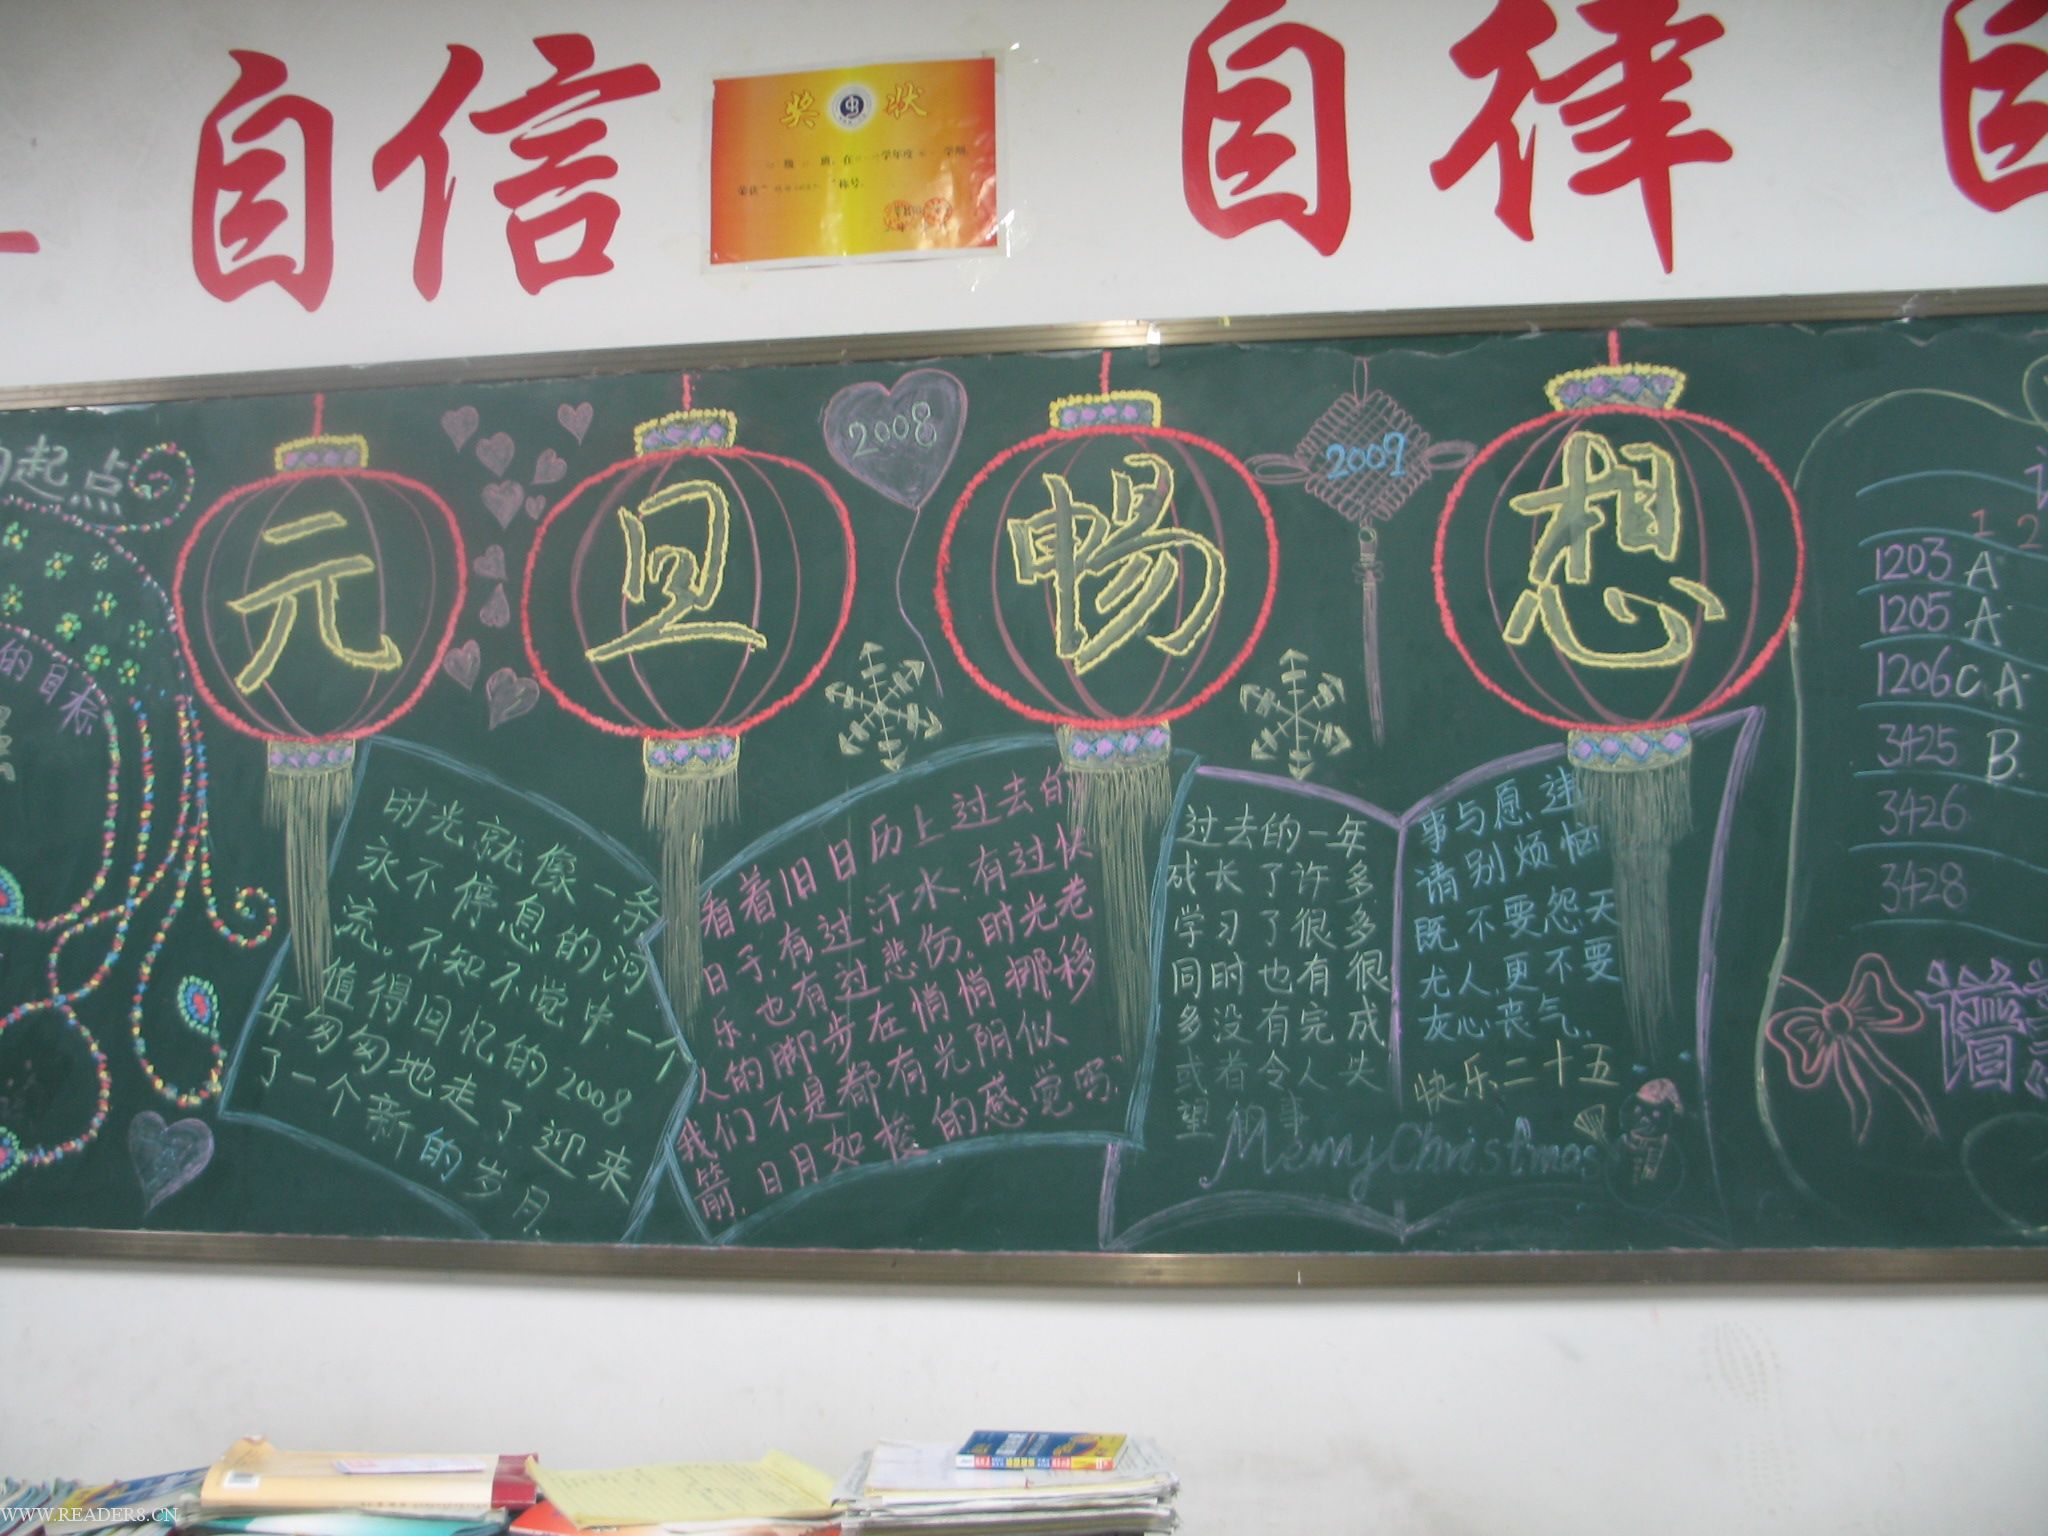 自信
奖状
自律
自
起点
的目标
元旦畅想
2008
2009
时光就像一条
永不停息的河
流。不知不觉中,一个
值得回忆的2008
年匆匆地走了迎来
了一个新的岁月.
看着旧日历上过去的
日子,有过汗水,有过快
乐,也有过悲伤。时光老
人的脚步在悄悄挪移
我们不是都有光阴似
箭,日月如梭的感觉吗.
过去的一年
成长了许多
学习了很多
同时也有很
多没有完成
或者令人失
望的事
事与愿违
请别烦恼
既不要怨天
尤人,更不要
灰心丧气.
快乐二十五
Merry Christmas
1 2
1203 A
1205 A
1206 C A
3425 B
3426
3428
谱
WWW.READER8.CN